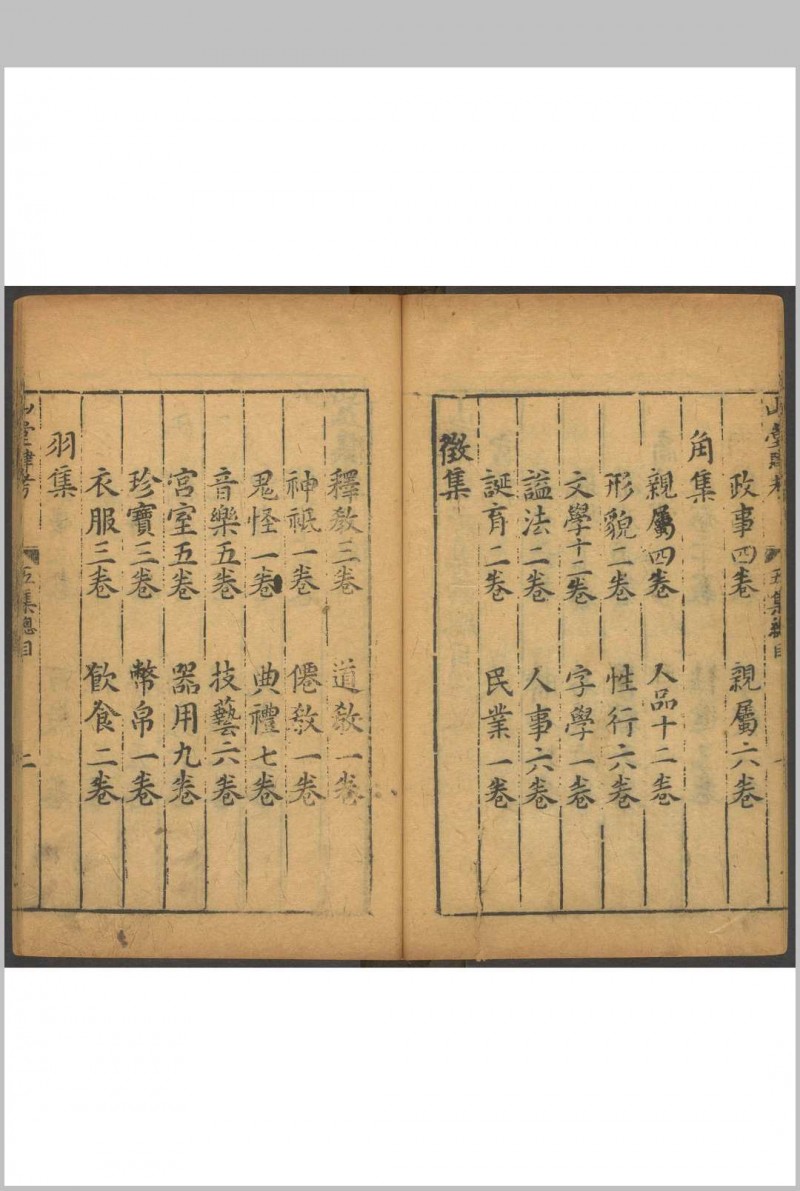 山堂肆考
五集總目
一
政事四卷 親屬六卷
角集
親屬四卷 人品十二卷
形貌二卷 性行六卷
文學十二卷 字學一卷
謚法二卷 人事六卷
誕育二卷 民業一卷
徵集
釋教三卷 道教一卷
神祗一卷 僊教一卷
鬼怪一卷 典禮七卷
音樂五卷 技藝六卷
宮室五卷 器用九卷
珍寶三卷 幣帛一卷
衣服三卷 飲食二卷
羽集
山堂肆考
五集總目
二